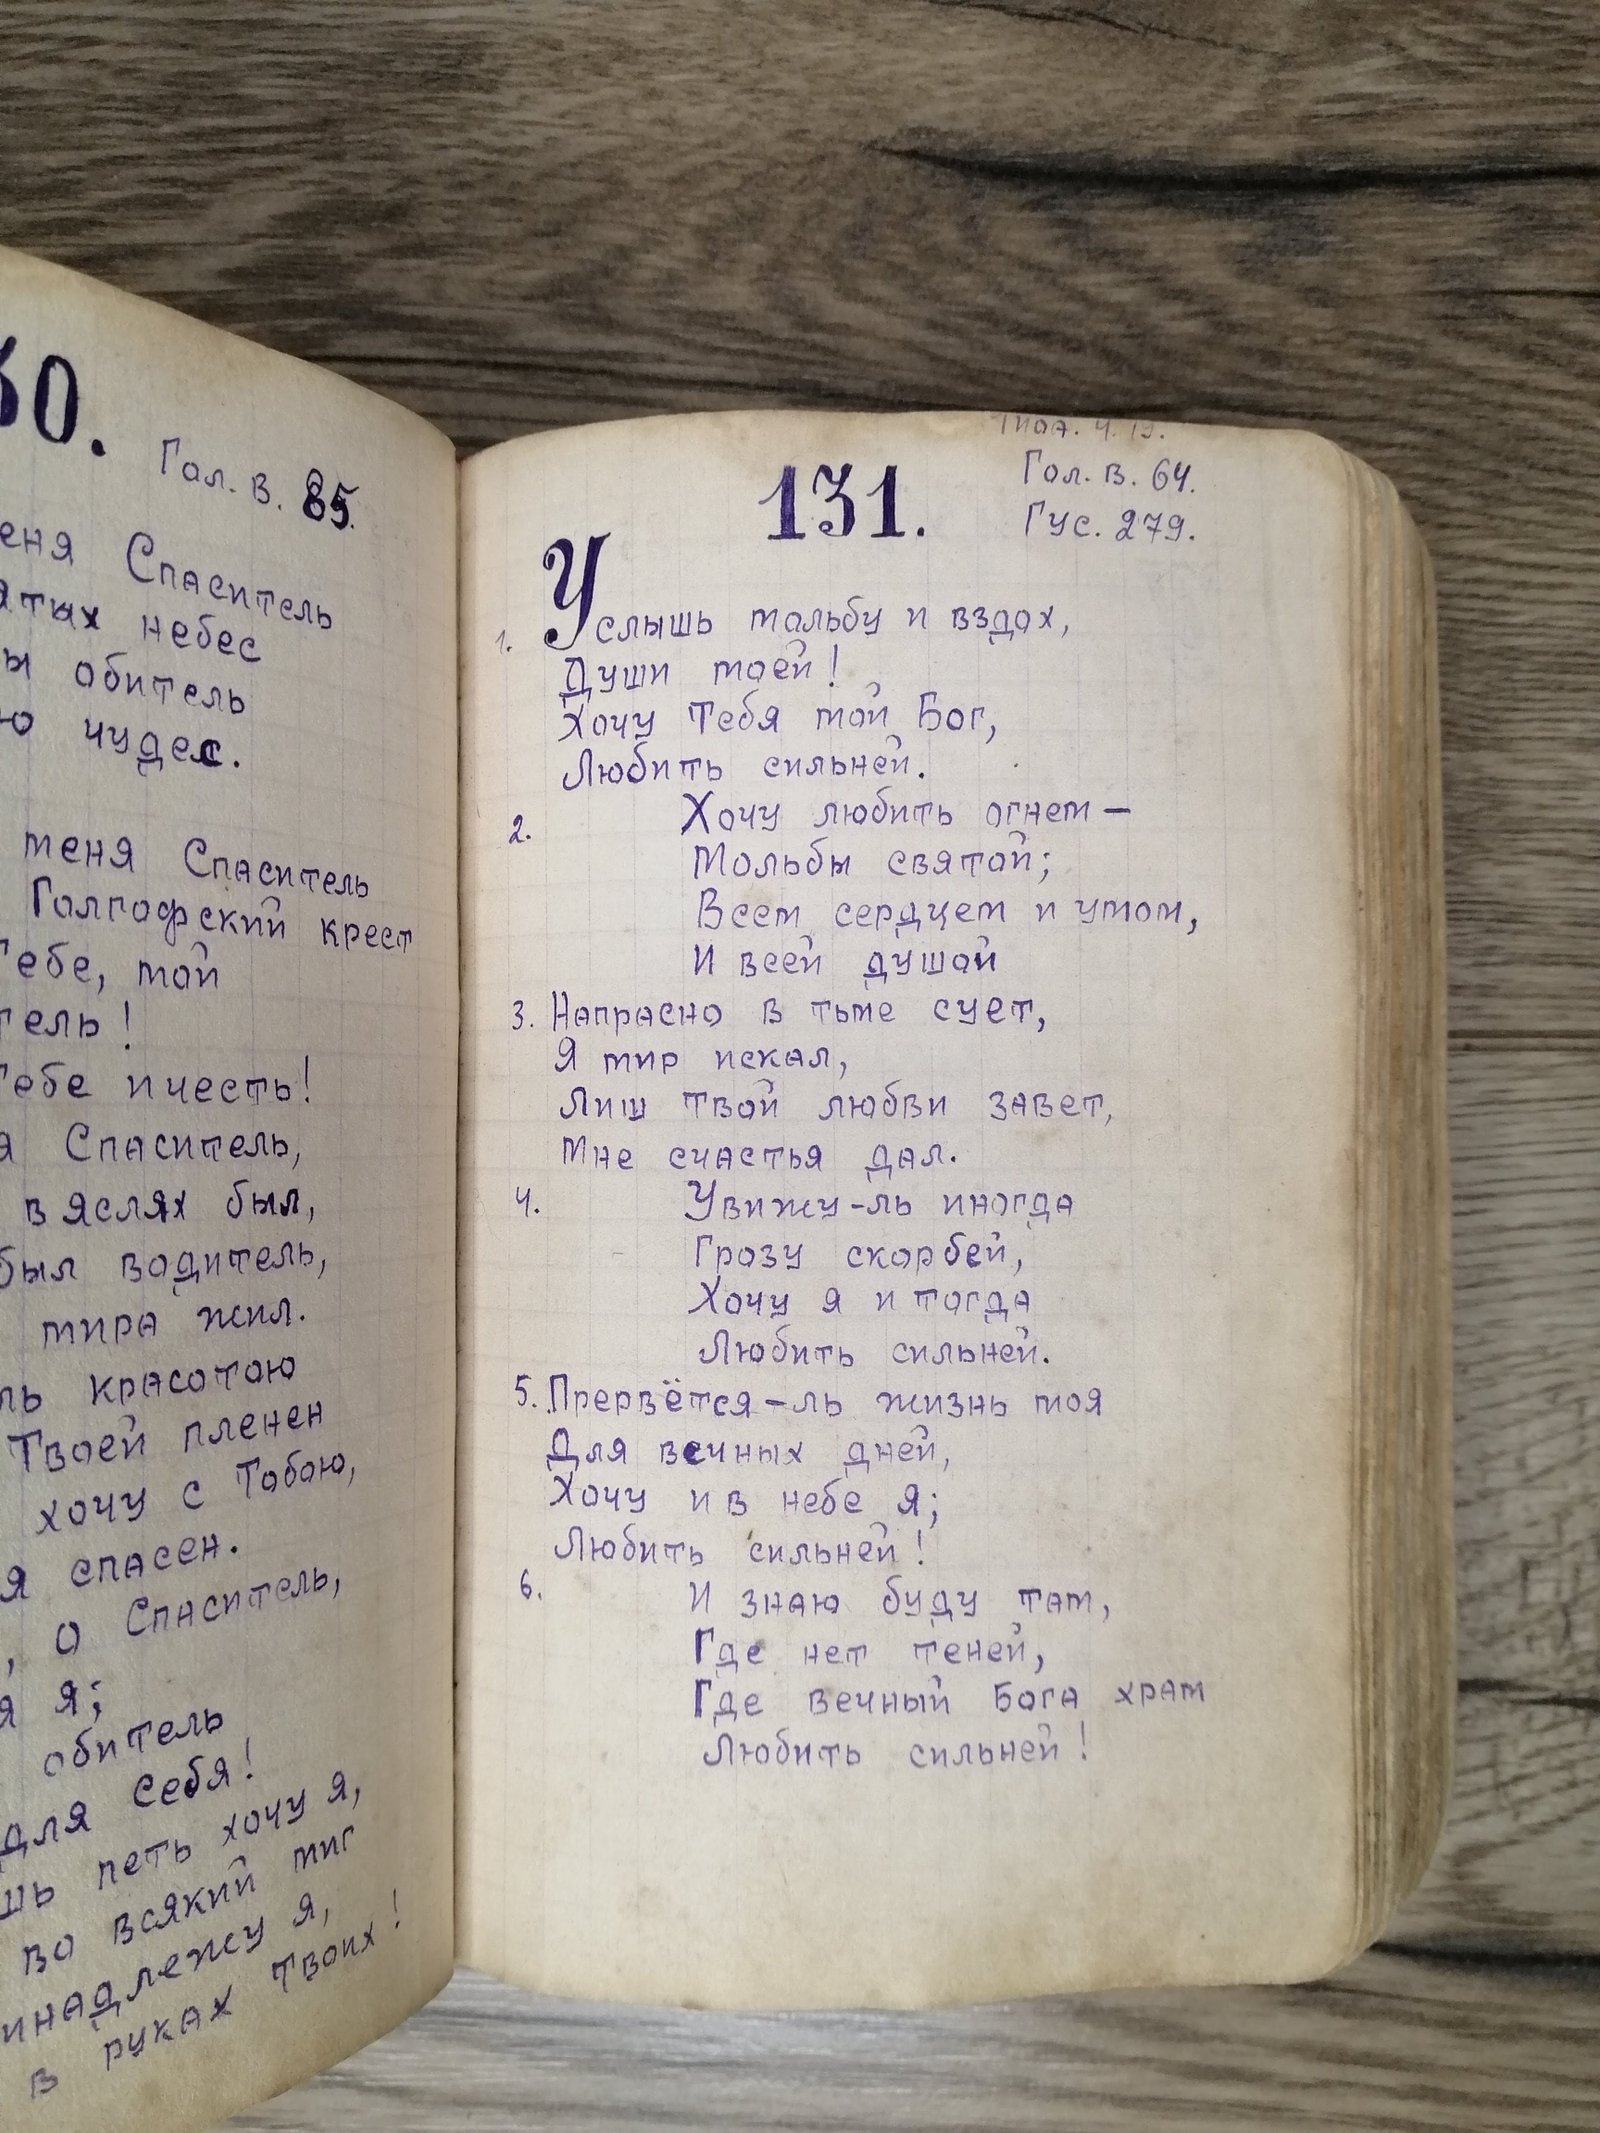 30.
Гол. в. 85.
еня Спаситель
ятых небес
ы обитель
ю чудес.
меня Спаситель
Голгофский крест
Тебе, мой
тель!
Тебе и честь!
я Спаситель,
в яслях был,
был водитель,
мира жил.
ль красотою
Твоей пленен
хочу с Тобою,
я спасен.
, о Спаситель,
я я;
обитель
для Себя!
шь петь хочу я,
во всякий миг
инадлежу я,
в руках Твоих!
131.
Гол. в. 64.
Гус. 279.
1. Услышь мольбу и вздох,
Души моей!
Хочу Тебя мой Бог,
Любить сильней.
2. Хочу любить огнем –
Мольбы святой;
Всем сердцем и умом,
И всей душой
3. Напрасно в тьме сует,
Я мир искал,
Лиш твой любви завет,
Мне счастья дал.
4. Увижу-ль иногда
Грозу скорбей,
Хочу я и тогда
Любить сильней.
5. Прервётся-ль жизнь моя
Для вечных дней,
Хочу и в небе я;
Любить сильней!
6. И знаю буду там,
Где нет теней,
Где вечный Бога храм
Любить сильней!